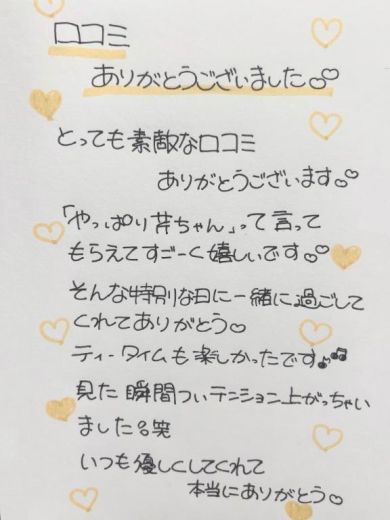 口コミ
ありがとうございました♡♡
とっても素敵な口コミ
ありがとうございます♡♡
「やっぱり芹ちゃん」って言って
もらえてすごーく嬉しいです♡♡
そんな特別な日に一緒に過ごして
くれてありがとう♡
ティータイムも楽しかったです♪♫
見た瞬間ついテンション上がっちゃい
ました笑
いつも優しくしてくれて
本当にありがとう♡